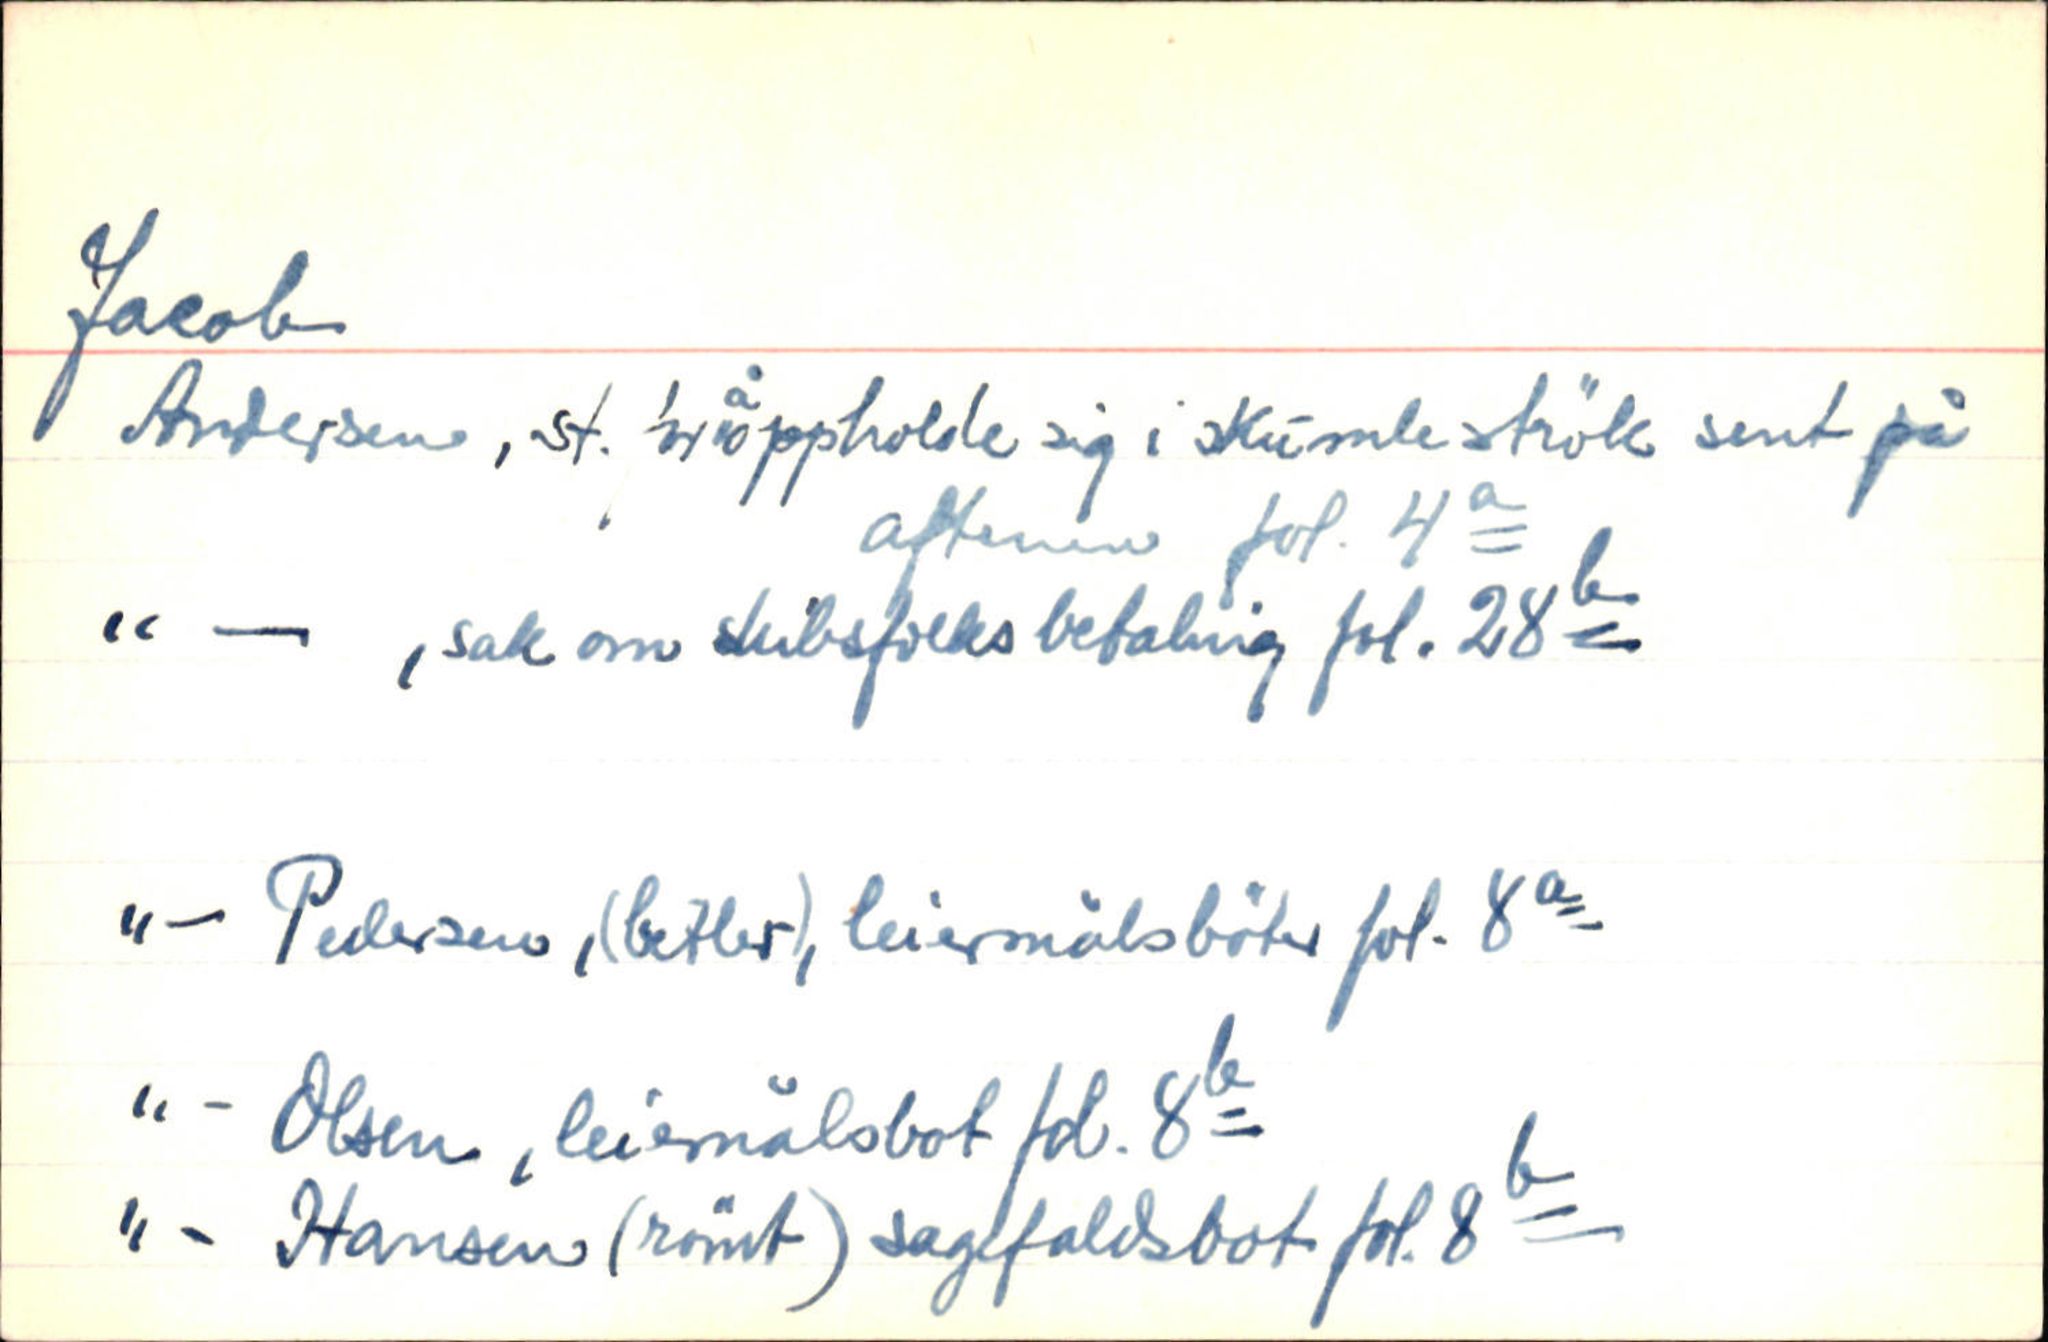 Jacob
Andersen, st. for å oppholde sig i skumle strök sent på
aftenen fol. 4a
" — , sak om skibsfolks betaling fol. 28b
" — Pedersen, (betler), leiermålsböter fol. 8a
" - Olsen, leiermålsbot fol. 8b
" - Hansen (römt) sagefaldsbot fol. 8b